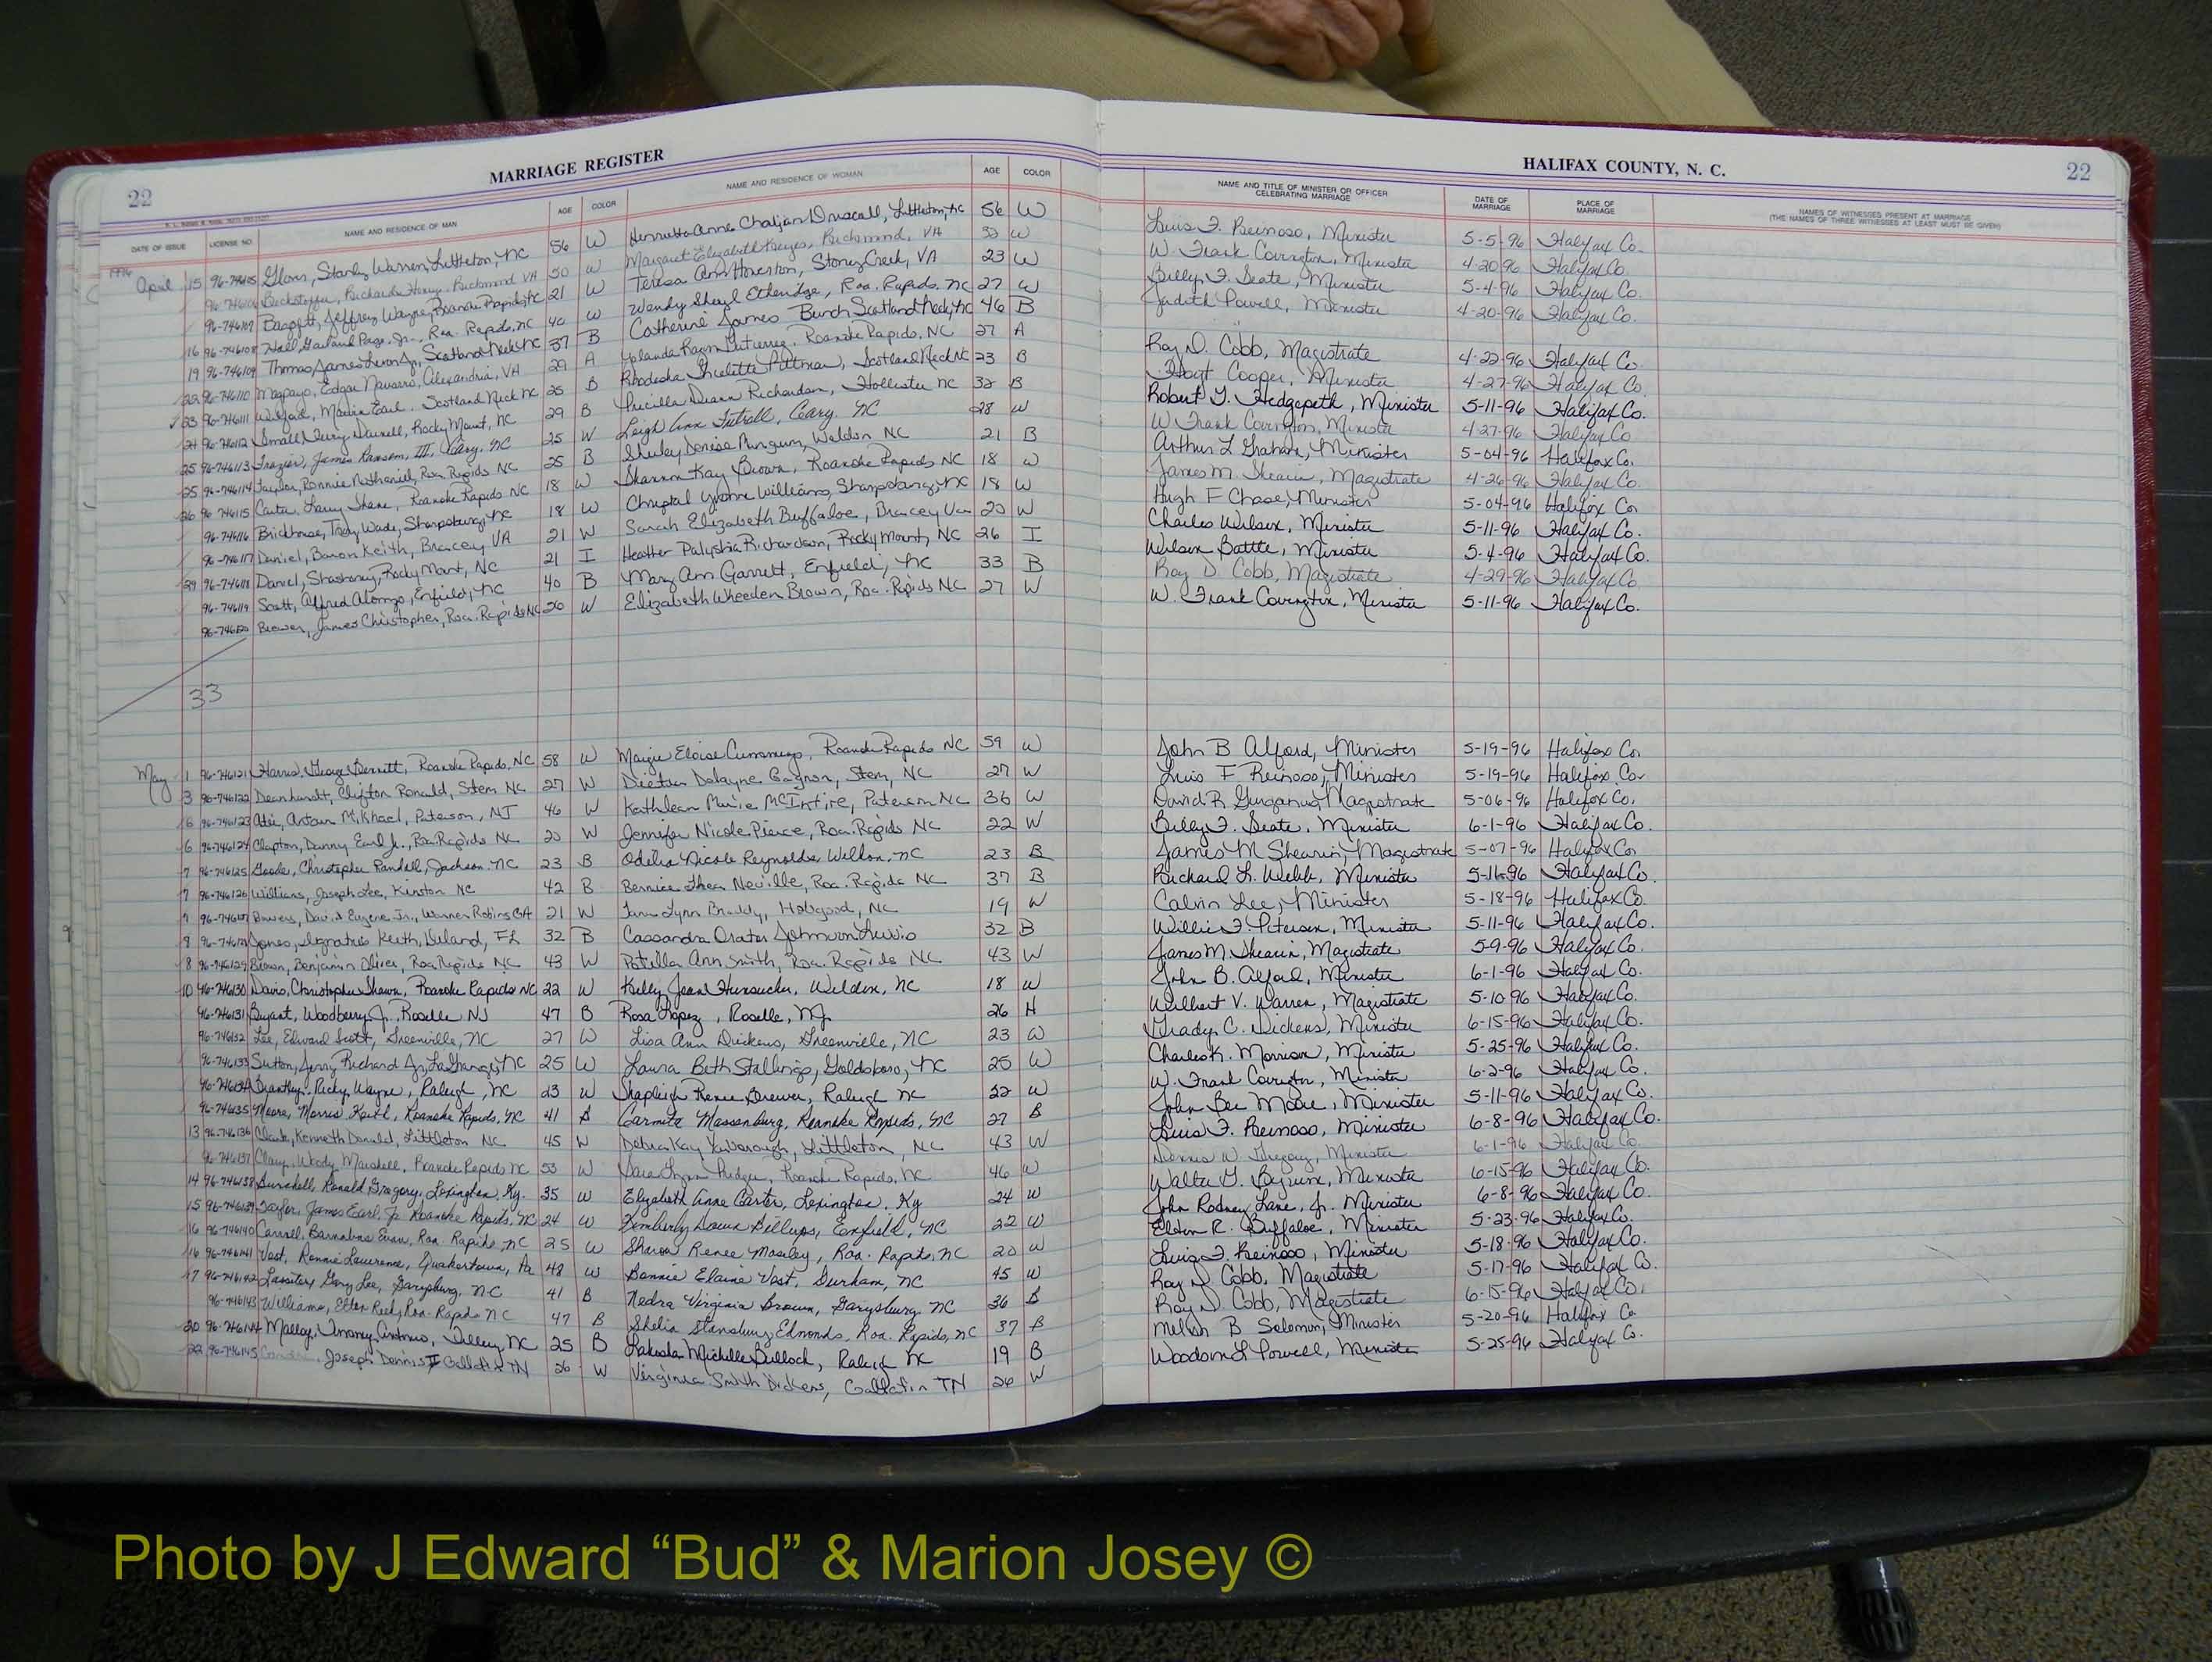 22 MARRIAGE REGISTER HALIFAX COUNTY, N. C. 22
DATE OF ISSUE LICENSE NO. NAME AND RESIDENCE OF MAN AGE COLOR NAME AND RESIDENCE OF WOMAN AGE COLOR NAME AND TITLE OF MINISTER OR OFFICER CELEBRATING MARRIAGE DATE OF MARRIAGE PLACE OF MARRIAGE NAMES OF WITNESSES PRESENT AT MARRIAGE (THE NAMES OF THREE WITNESSES AT LEAST MUST BE GIVEN)
1996
April 15 96-746105 Stanley Warren, Littleton, NC 56 W Henrietta Anne Driscoll, Littleton, NC 56 W Luis F. Reinoso, Minister 5-5-96 Halifax Co.
96-746106 Richard Henry Richmond VA 50 W Margaret Elizabeth Richmond, VA 53 W W. Frank Covington, Minister 4-20-96 Halifax Co.
96-746107 Baggett, Jeffrey Wayne, Roanoke Rapids, NC 21 W Teresa Ann Stoney Creek, VA 23 W Billy F. Seate, Minister 5-4-96 Halifax Co.
16 96-746108 Hall, Garland Page, Jr., Roa. Rapids, NC 40 W Wendy Sheryl Etheridge, Roa. Rapids, NC 27 W Judith Powell, Minister 4-20-96 Halifax Co.
19 96-746109 Thomas, James Scotland Neck NC 57 B Catherine James Burch Scotland Neck, NC 46 B Roy D. Cobb, Magistrate 4-22-96 Halifax Co.
22 96-746110 Magpayo, Edgar Navarro, Alexandria, VA 29 A Yolanda Gutierrez, Roanoke Rapids, NC 27 A Hoyt Cooper, Minister 4-27-96 Halifax Co.
23 96-746111 Marvin Earl, Scotland Neck NC 25 B Rhodesha Pittman, Scotland Neck NC 23 B Robert J. Hedgepeth, Minister 5-11-96 Halifax Co.
24 96-746112 Small, Rocky Mount, NC 29 B Priscilla Diann Richardson, Hollister NC 32 B W. Frank Covington, Minister 4-27-96 Halifax Co
25 96-746113 Frazier, James Ransom, III, Cary, NC 25 W Leigh Ann Futrell, Cary, NC 28 W Arthur L Graham, Minister 5-04-96 Halifax Co.
25 96-746114 Taylor, Ronnie Nathaniel, Roa. Rapids NC 25 B Shirley Denise Weldon NC 21 B James M. Shearin, Magistrate 4-26-96 Halifax Co.
26 96-746115 Carter, Larry Shane, Roanoke Rapids NC 18 W Shannon Kay Brown, Roanoke Rapids NC 18 W Hugh F Chase, Minister 5-04-96 Halifax Co.
96-746116 Brickhouse, Troy Wade, Sharpsburg, NC 18 W Chrystal Yvonne Williams, Sharpsburg, NC 18 W Charles Wilson, Minister 5-11-96 Halifax Co.
96-746117 Daniel, Baron Keith, Bracey VA 21 W Sarah Elizabeth Buffaloe, Bracey Va 20 W Wilson Battle, Minister 5-4-96 Halifax Co.
29 96-746118 Daniel, Rocky Mount, NC 21 I Heather Richardson, Rocky Mount, NC 26 I Roy D. Cobb, Magistrate 4-29-96 Halifax Co
96-746119 Scott, Alfred Alonzo, Enfield, NC 40 B Mary Ann Garrett, Enfield, NC 33 B W. Frank Covington, Minister 5-11-96 Halifax Co.
96-746120 Brewer, James Christopher, Roa. Rapids NC 20 W Elizabeth Wheeden Brown, Roa. Rapids NC 27 W
33
May 1 96-746121 Harris, George Roanoke Rapids, NC 58 W Eloise Cummings, Roanoke Rapids NC 59 W John B Alford, Minister 5-19-96 Halifax Co.
3 96-746122 Deanhardt, Clifton Ronald, Stem NC 27 W Delayne Gagnon, Stem, NC 27 W Luis F Reinoso, Minister 5-19-96 Halifax Co.
6 96-746123 Mikhael, Paterson, NJ 46 W Kathleen Marie McIntire, Paterson NC 36 W David R Gurganus, Magistrate 5-06-96 Halifax Co.
6 96-746124 Clapton, Danny Earl Jr., Roa. Rapids NC 20 W Jennifer Nicole Pierce, Roa. Rapids NC 22 W Billy F. Seate, Minister 6-1-96 Halifax Co.
7 96-746125 Goode, Christopher Randell, Jackson NC 23 B Odelia Nicole Reynolds Weldon, NC 23 B James M Shearin, Magistrate 5-07-96 Halifax Co.
7 96-746126 Williams, Joseph Lee, Kinston NC 42 B Bernice Neville, Roa. Rapids NC 37 B Richard L. Webb, Minister 5-11-96 Halifax Co.
7 96-746127 Bowers, David Eugene Jr., Warner Robins GA 21 W Lynn Braddy, Hobgood, NC 19 W Calvin Lee, Minister 5-18-96 Halifax Co.
8 96-746128 Jones, Ignatius Keith, Deland, FL 32 B Cassandra Johnson Lewis 32 B Willie F. Peterson, Minister 5-11-96 Halifax Co.
8 96-746129 Brown, Benjamin Oliver, Roa. Rapids NC 43 W Ann Smith, Roa. Rapids NC 43 W James M. Shearin, Magistrate 5-9-96 Halifax Co.
10 96-746130 Davis, Christopher Shawn, Roanoke Rapids NC 22 W Kelly Jean Hunsucker, Weldon, NC 18 W John B. Alford, Minister 6-1-96 Halifax Co.
96-746131 Bryant, Woodberry Jr., Roselle NJ 47 B Rosa Lopez, Roselle, NJ 26 H Wilbert V. Warren, Magistrate 5-10 96 Halifax Co.
96-746132 Lee, Edward Scott, Greenville, NC 27 W Lisa Ann Dickens, Greenville, NC 23 W Grady C. Dickens, Minister 6-15-96 Halifax Co.
96-746133 Sutton, Jerry Richard Jr, LaGrange, NC 25 W Laura Beth Stallings, Goldsboro, NC 25 W Charles K. Morrison, Minister 5-25-96 Halifax Co.
96-746134 Brantley, Ricky Wayne, Raleigh, NC 23 W Shapleigh Renee Brewer, Raleigh NC 22 W W. Frank Covington, Minister 6-2-96 Halifax Co.
96-746135 Moore, Morris Roanoke Rapids, NC 41 B Carmita Massenburg, Roanoke Rapids, NC 27 B John Lee Moore, Minister 5-11-96 Halifax Co.
13 96-746136 Clark, Kenneth Donald, Littleton NC 45 W Debra Kay Yarborough, Littleton, NC 43 W Luis F. Reinoso, Minister 6-8-96 Halifax Co.
96-746137 Clary, Woody Marshall, Roanoke Rapids NC 53 W Roanoke Rapids, NC 46 W Dennis W. Gregory, Minister 6-1-96 Halifax Co.
14 96-746138 Ronald Gregory, Lexington, Ky. 35 W Elizabeth Anne Carter, Lexington, Ky 24 W Walter Minister 6-15-96 Halifax Co.
15 96-746139 Taylor, James Earl, Jr. Roanoke Rapids, NC 24 W Kimberly Dawn Billups, Enfield, NC 22 W John Rodney Lane, Jr. Minister 6-8-96 Halifax Co.
16 96-746140 Carroll, Barnabas Evan, Roa. Rapids, NC 25 W Sharon Renee Mosley, Roa. Rapids, NC 20 W Elton R. Buffaloe, Minister 5-23-96 Halifax Co.
16 96-746141 Vast, Ronnie Lawrence, Quakertown, Pa 48 W Bonnie Elaine Vast, Durham, NC 45 W Luis F. Reinoso, Minister 5-18-96 Halifax Co.
17 96-746142 Lassiter, Gary Lee, Garysburg, NC 41 B Nedra Virginia Brown, Garysburg, NC 36 B Roy D. Cobb, Magistrate 5-17-96 Halifax Co.
96-746143 Williams, Roa. Rapids NC 47 B Shelia Stansbury Edmonds, Roa. Rapids, NC 37 B Roy D. Cobb, Magistrate 6-15-96 Halifax Co.
20 96-746144 Tillery, NC 25 B Michelle Bulloch, Raleigh NC 19 B Melvin B Solomon, Minister 5-20-96 Halifax Co
22 96-746145 Joseph Dennis II Gallatin TN 26 W Virginia Smith Dickens, Gallatin TN 26 W Woodson L Powell, Minister 5-25-96 Halifax Co.
Photo by J Edward “Bud” & Marion Josey ©